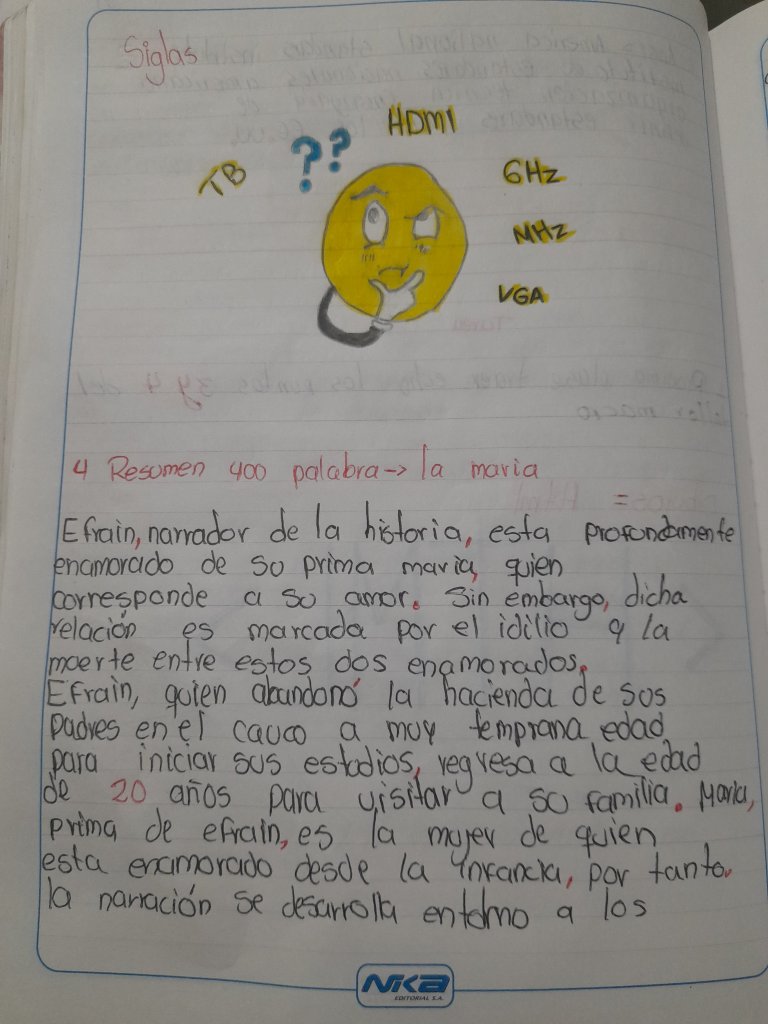 Siglas
HDMI
??
TB
GHz
MHz
VGA
4 Resumen 400 palabra→ la maria
Efrain, narrador de la historia, esta profundamente
enamorado de su prima maria, quien
corresponde a su amor. Sin embargo, dicha
relación es marcada por el idilio y la
muerte entre estos dos enamorados.
Efrain, quien abandonó la hacienda de sus
padres en el cauca a muy temprana edad
para iniciar sus estudios, regresa a la edad
de 20 años para visitar a su familia. Maria,
prima de efrain, es la mujer de quien
esta enamorado desde la infancia, por tanto.
la narración se desarrolla entorno a los
NIKA
EDITORIAL S.A.